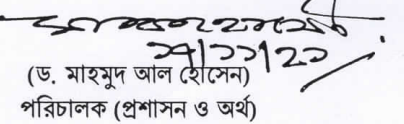 ২৭/১১/২১
(ড. মাহমুদ আল হোসেন)
পরিচালক (প্রশাসন ও অর্থ)